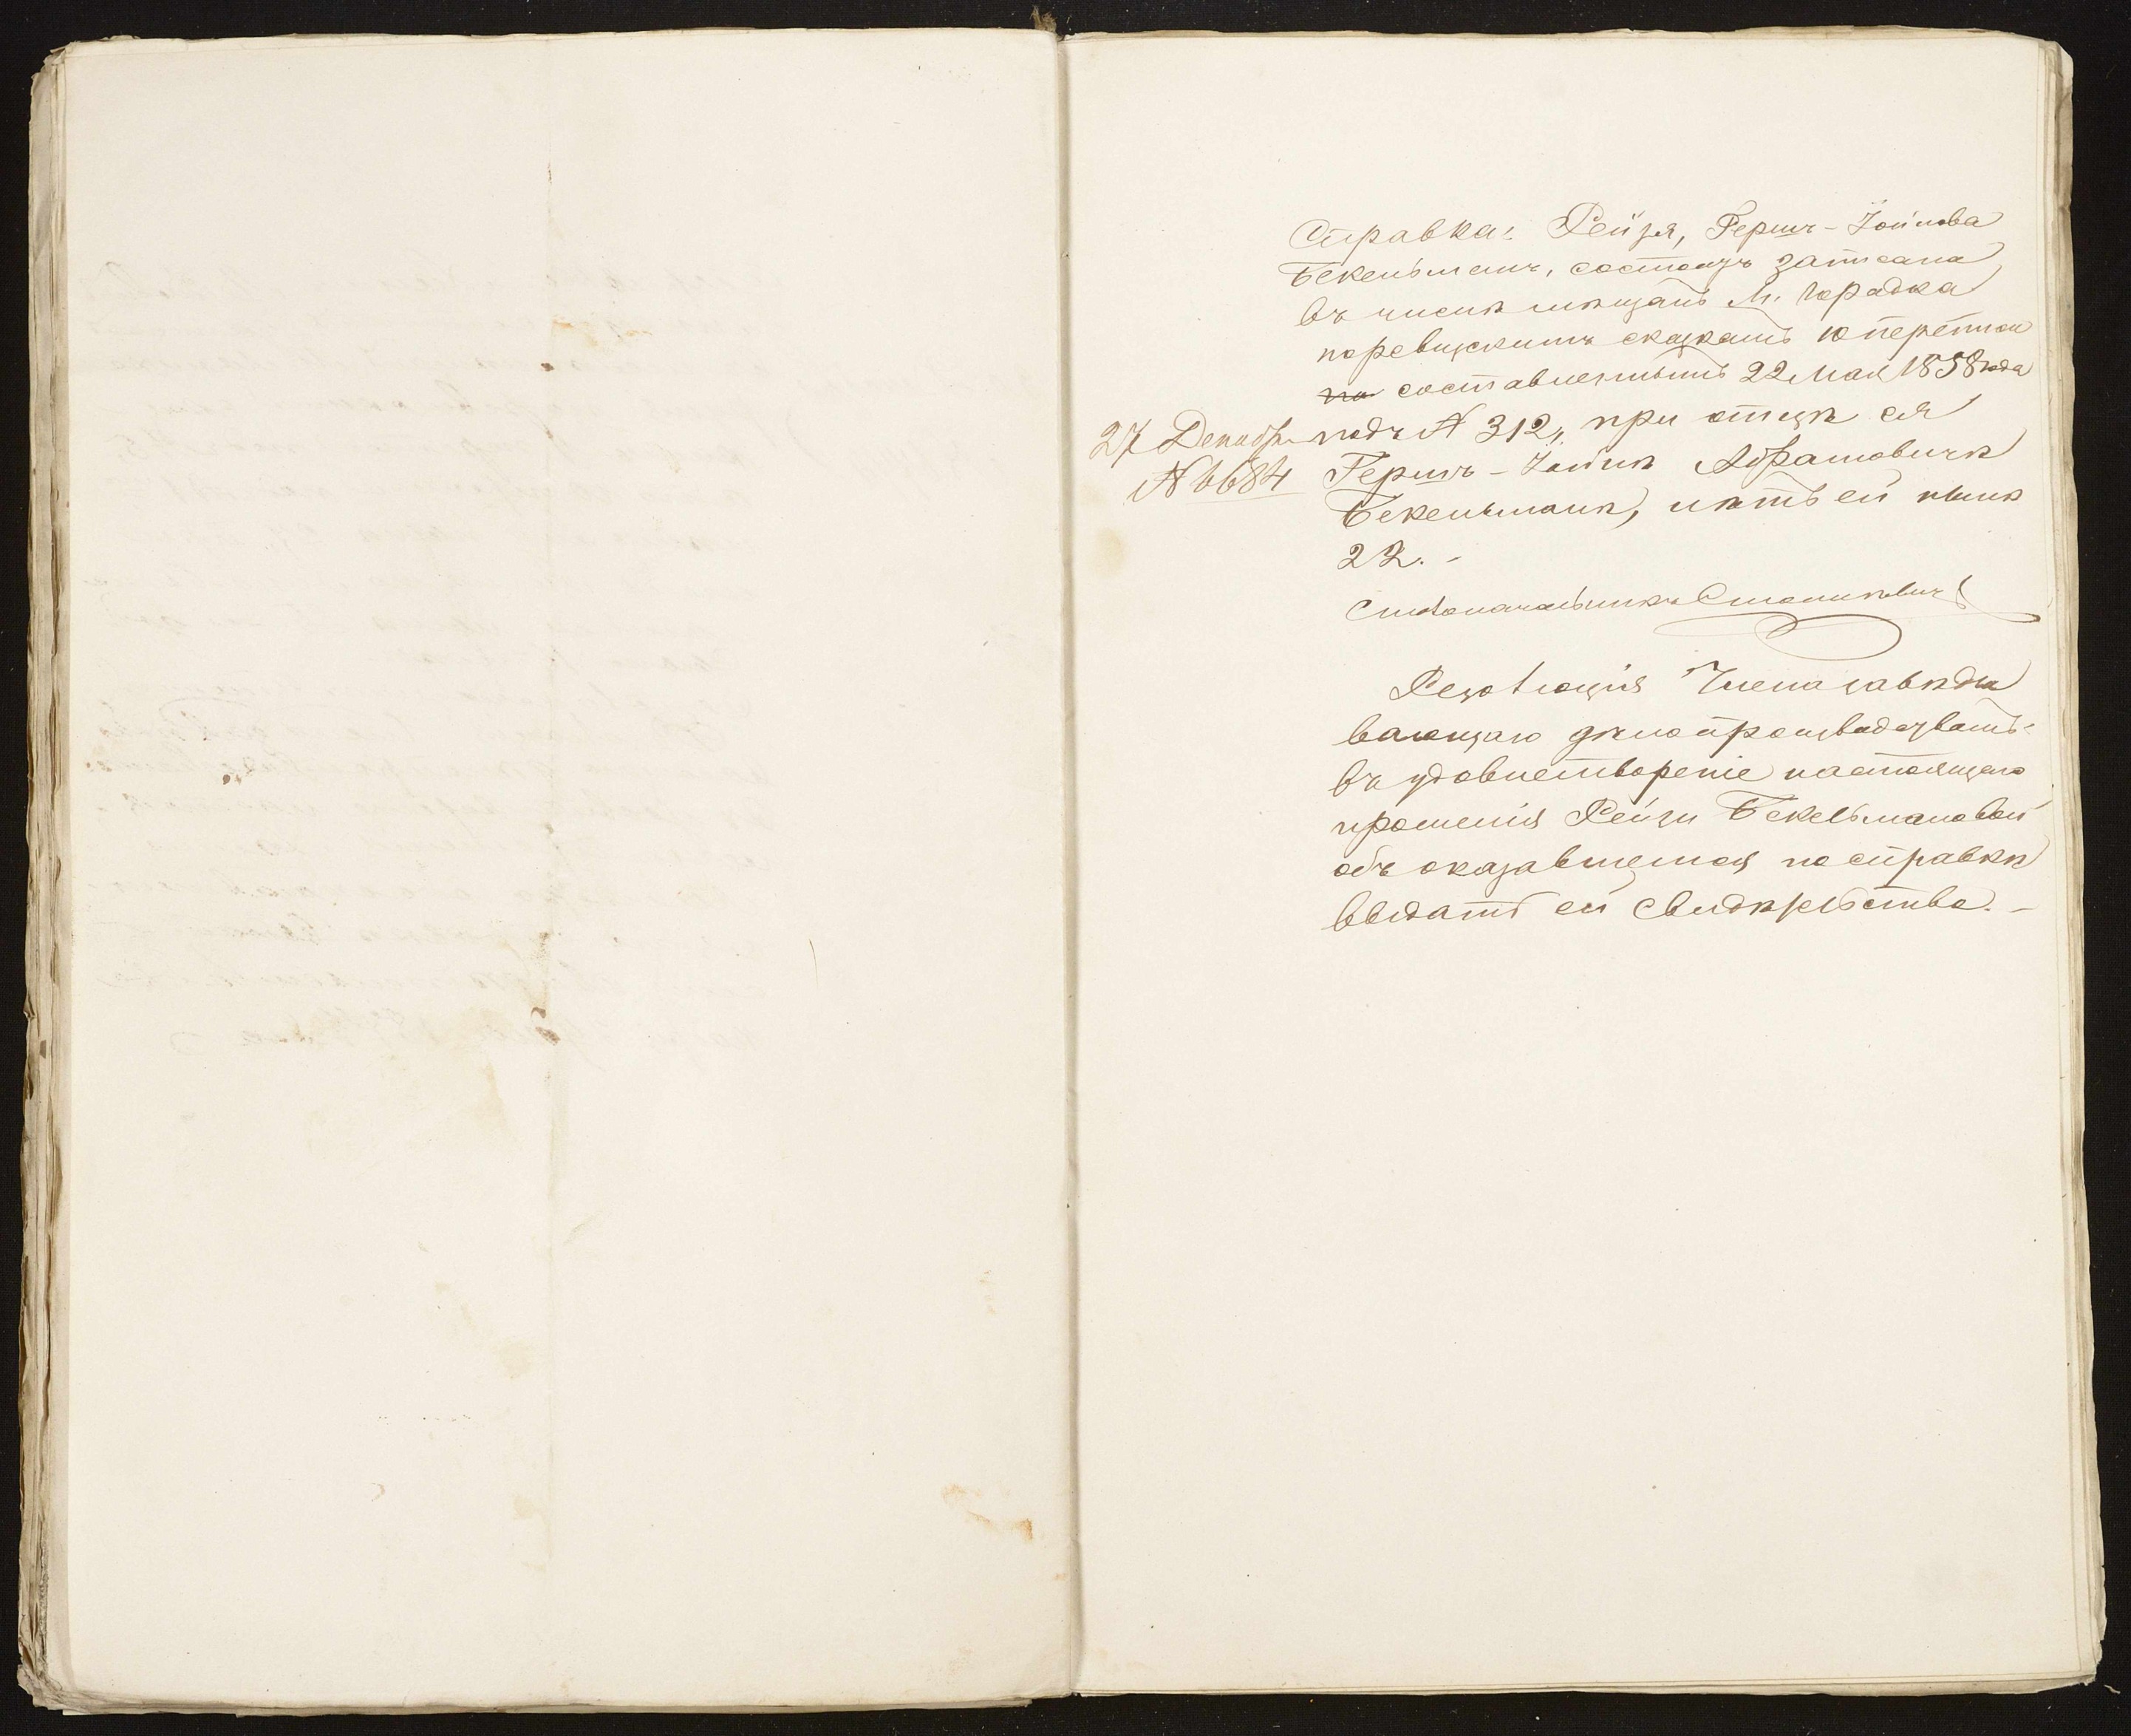 Справка: Рейзя, Гершъ-Іойнова
Бекельманъ, состоитъ записана
въ числѣ мѣщанъ м. Городка
по ревизскимъ сказкамъ 10 перепи
составленнымъ 22 Мая 1858 года
27 Декабря
№ 6684
подъ № 312, при отцѣ ея
Гершъ-Іойнѣ Абрамовичѣ
Бекельманѣ, лѣтъ ей нынѣ
22. -
Столоначальникъ
Резолюція Члена завѣды
вающаго дѣлопроизводствомъ:
въ удовлетвореніе настоящаго
прошенія Рейзи Бекельмановой
объ оказавшемся по справкѣ
выдать ей свидѣтельство. -